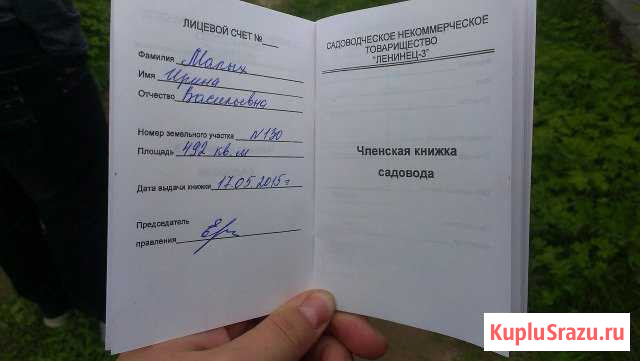 ЛИЦЕВОЙ СЧЕТ №
Фамилия Малых
Имя Ирина
Отчество Васильевна
Номер земельного участка N 130
Площадь 492 кв.м
Дата выдачи книжки 17.05.2015 г
Председатель
правления
САДОВОДЧЕСКОЕ НЕКОММЕРЧЕСКОЕ
ТОВАРИЩЕСТВО
"ЛЕНИНЕЦ-3"
Членская книжка
садовода
KupluSrazu.ru